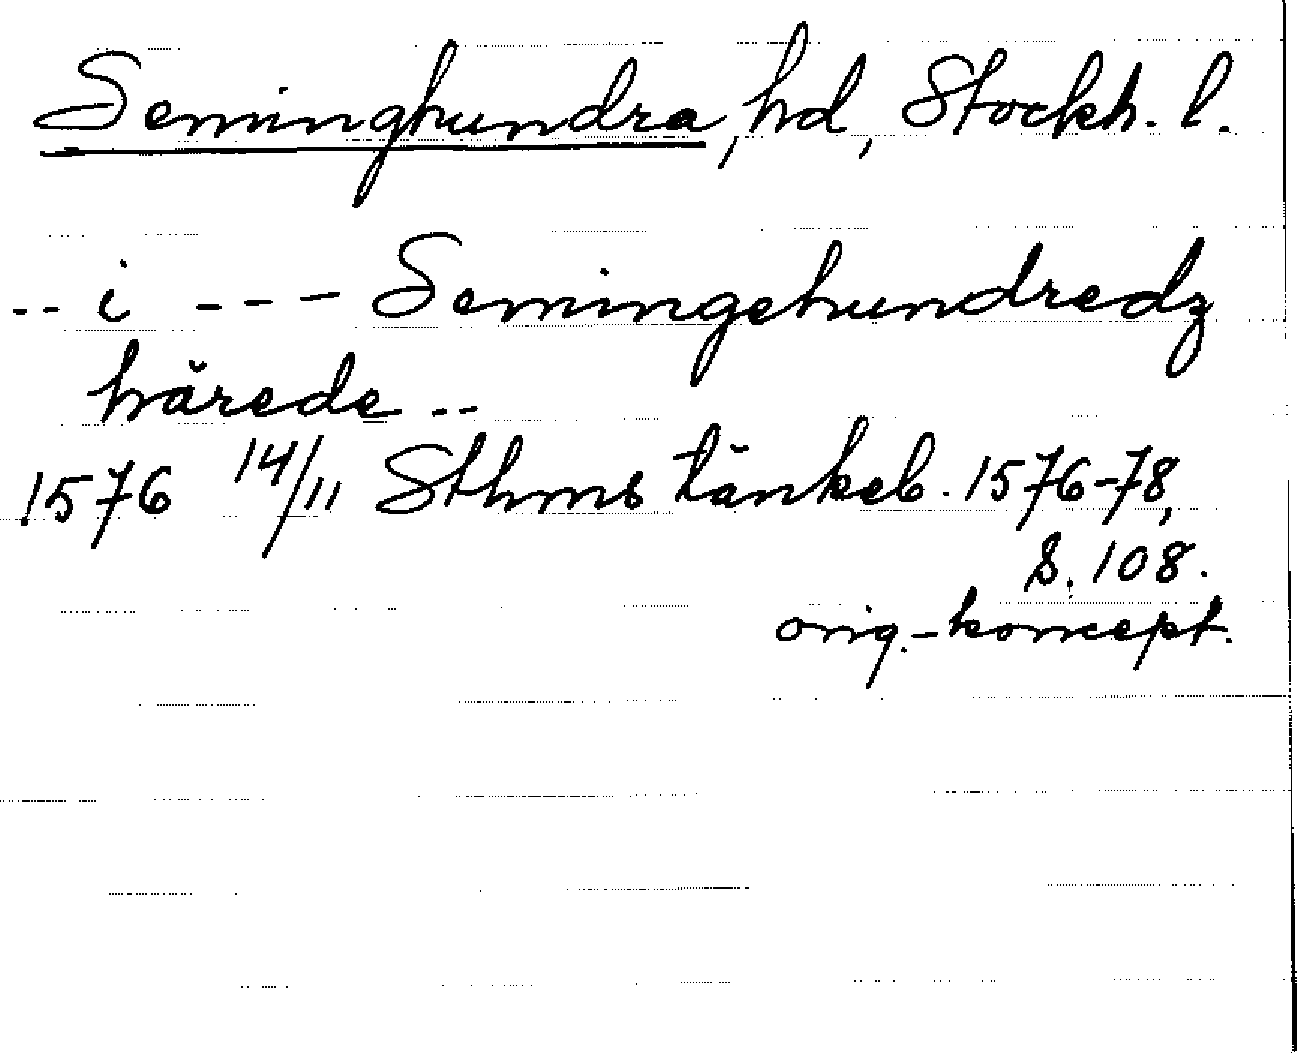 Seminghundra, hd, Stockh. l.
-- i --- Semingehundredz
härede --
1576 14/11 Sthms tänkeb. 1576-78,
S. 108.
orig.-koncept.